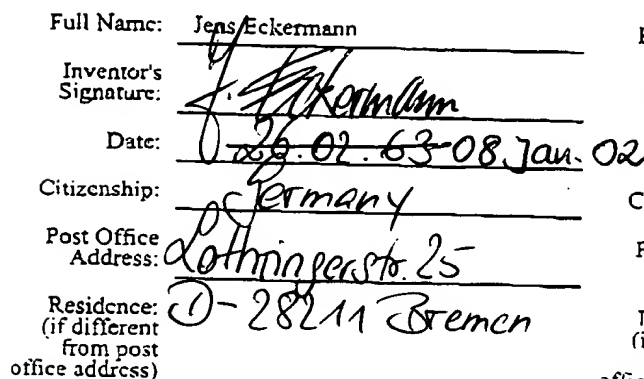 Full Name: Jens Eckermann
Inventor's
Signature: J. Eckermann
Date: 26.02.63 08. Jan. 02
Citizenship: Germany
Post Office
Address: Lothringerstr. 25
Residence: D-28211 Bremen
(if different
from post
office address)